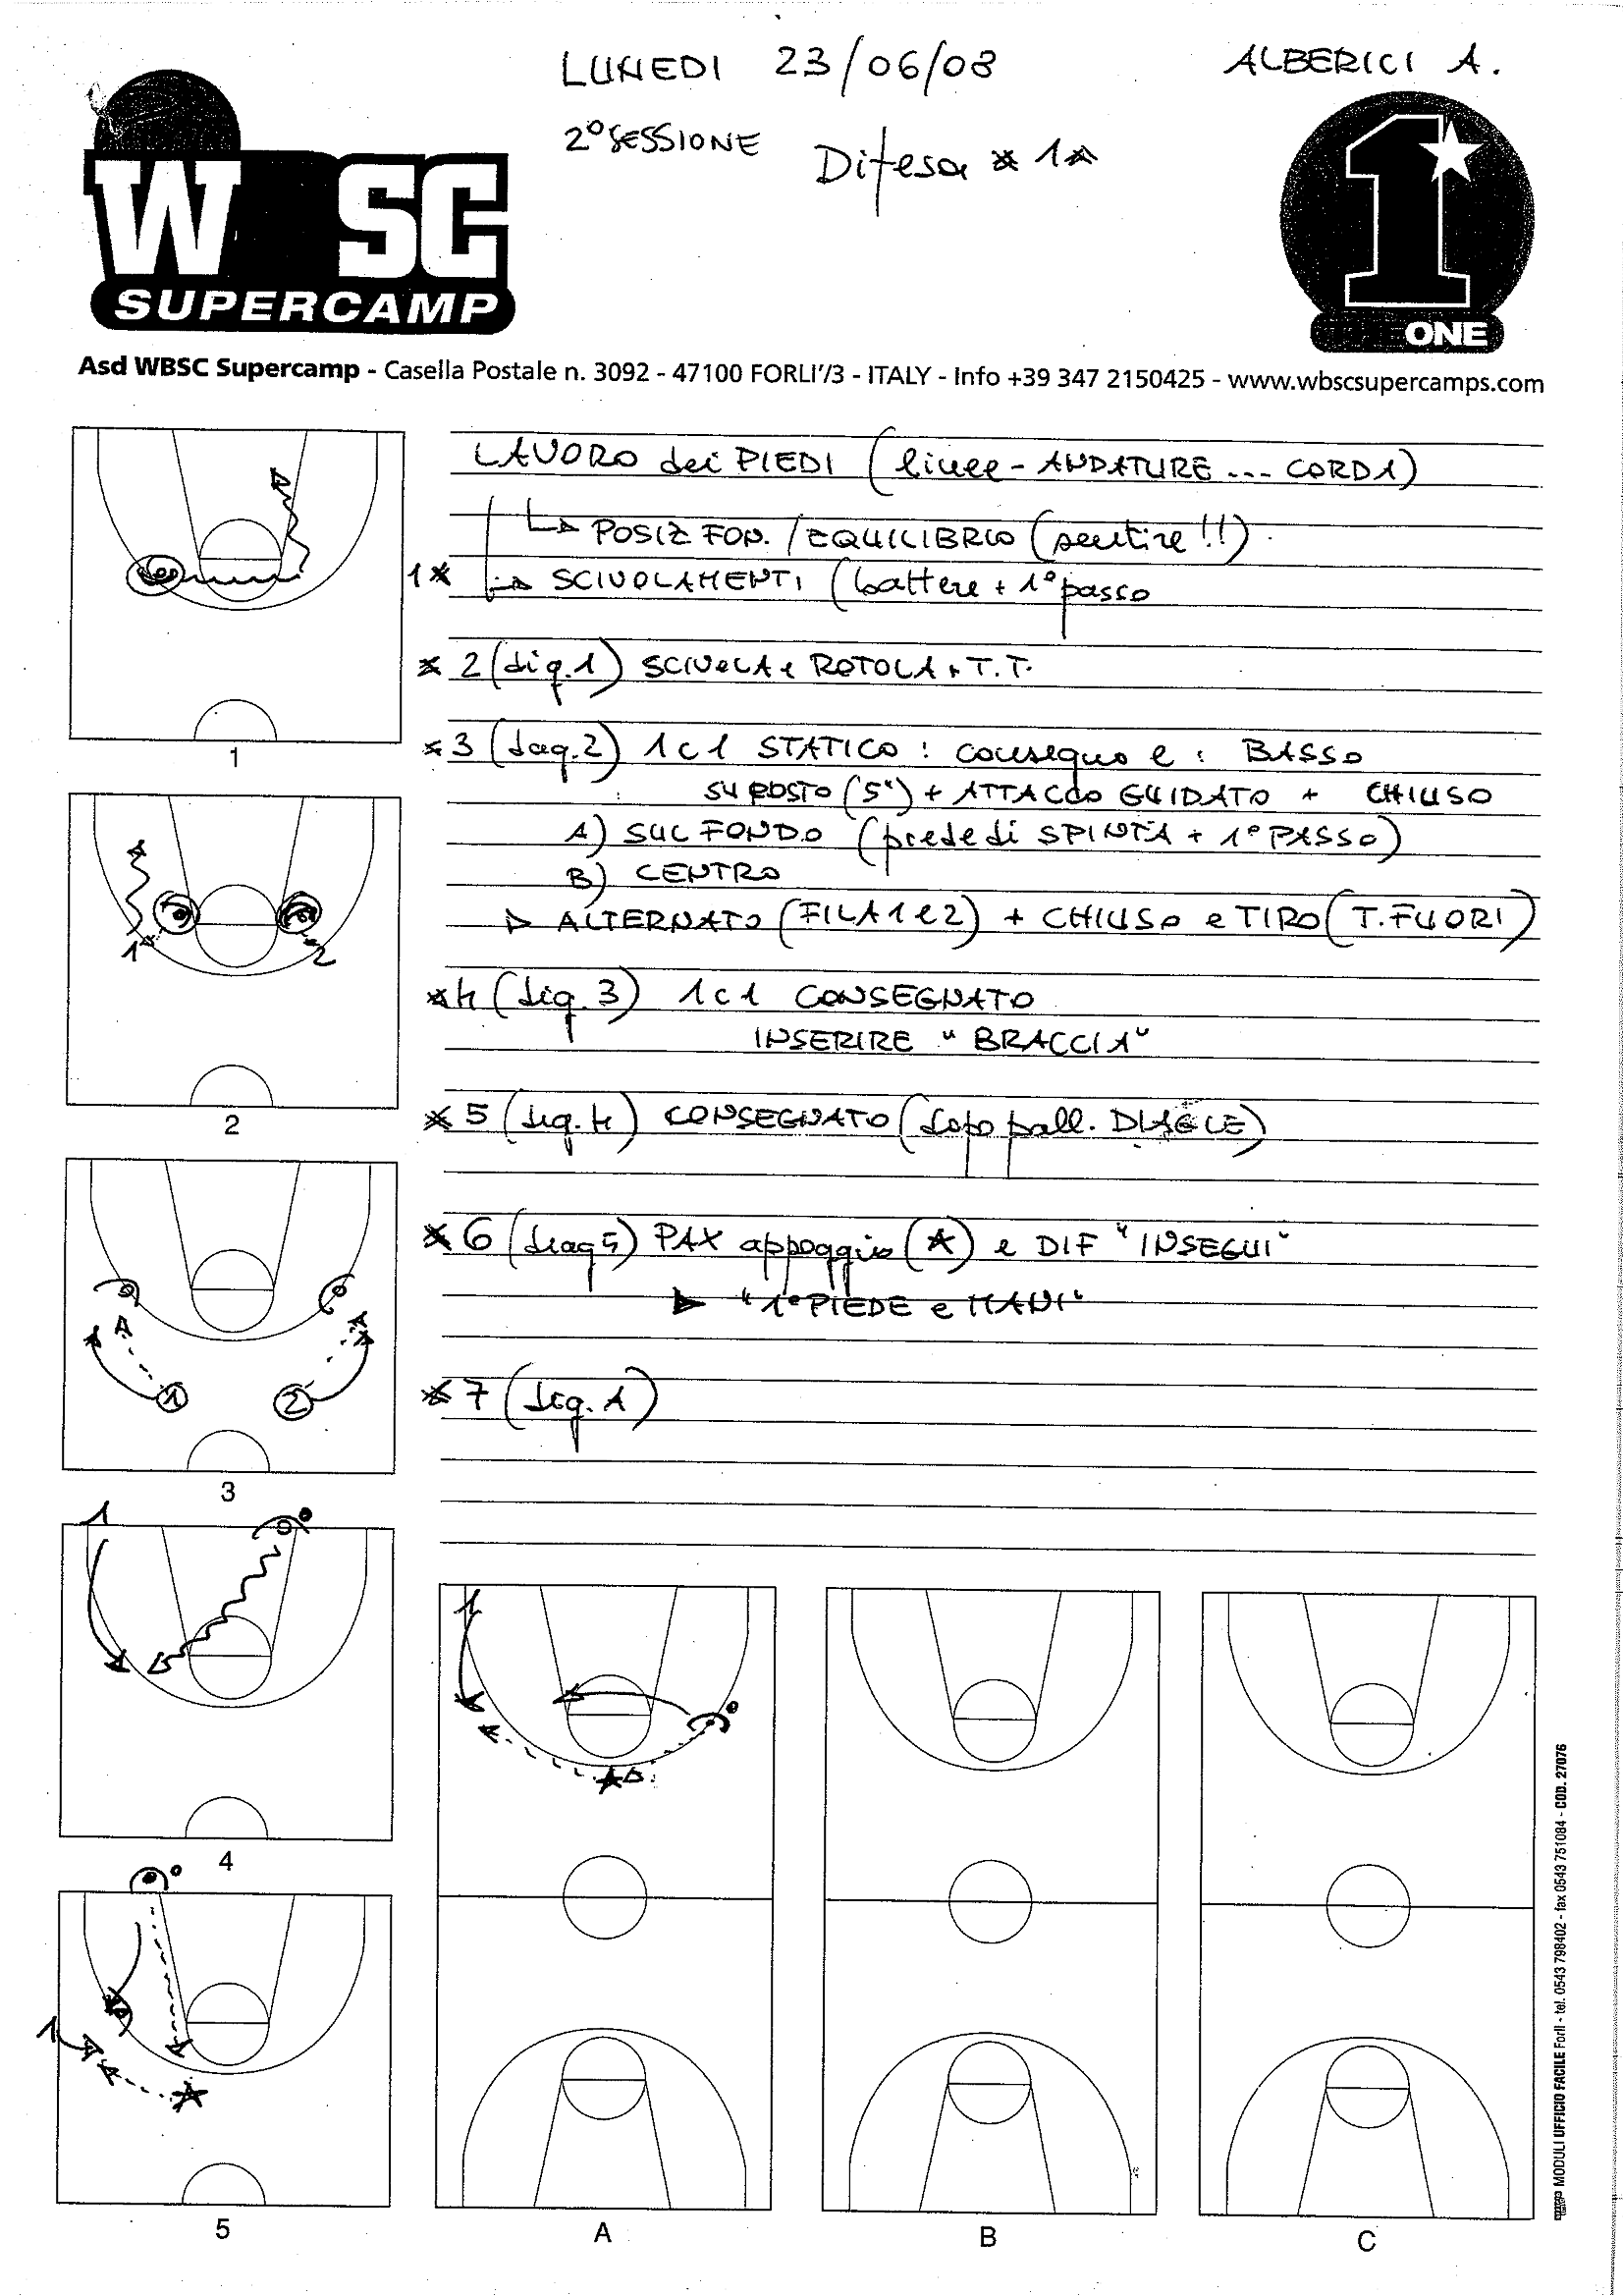 LUNEDI 23/06/08
ALBERICI A.
2° SESSIONE Difesa * 1*
W SC
SUPERCAMP
1
ONE
Asd WBSC Supercamp - Casella Postale n. 3092 - 47100 FORLI'/3 - ITALY - Info +39 347 2150425 - www.wbscsupercamps.com
LAVORO dei PIEDI (linee - ANDATURE ... CORDA)
POSIZ FON. / EQUILIBRIO (sentire !!)
1* SCIVOLAMENTI (battere + 1° passo
* 2 (dig. 1) SCIVOLA e ROTOLA + T.T.
1
* 3 (dag. 2) 1c1 STATICO : consegno e : BASSO
SU POSTO (5") + ATTACCO GUIDATO + CHIUSO
A) SUL FONDO (piede di SPINTA + 1° PASSO)
B) CENTRO
ALTERNATO (FILA 1 e 2) + CHIUSO e TIRO (T. FUORI)
1 2
2
* 4 (dig. 3) 1c1 CONSEGNATO
INSERIRE "BRACCIA"
* 5 (dig. 4) CONSEGNATO (dopo pall. DIAG.LE)
* 6 (diag 5) PAX appoggio (*) e DIF "INSEGUI"
"1° PIEDE e MANI"
* 7 (dig. A)
1 2
3
1
4
1
5
1
A
B
C
MODULI UFFICIO FACILE Forlì - tel. 0543 798402 - fax 0543 751084 - COD. 27076